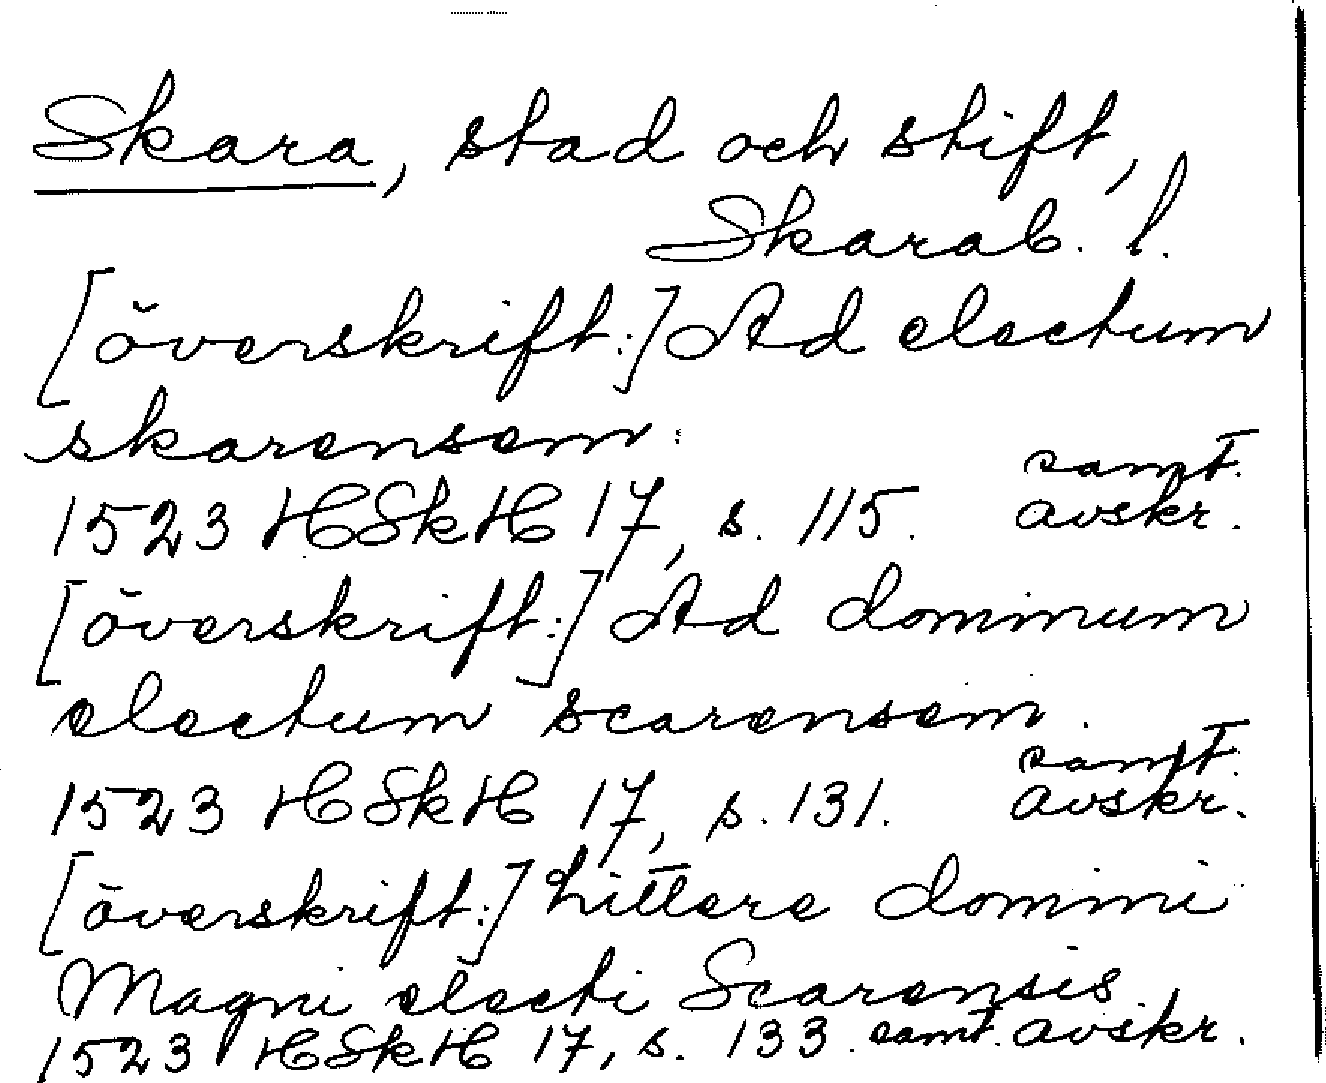 Skara, stad och stift,
Skarab. l.
[överskrift:] Ad electum
skarensem.
samt.
1523 HSkH 17, s. 115. avskr.
[överskrift:] Ad dominum
electum scarensem.
samt.
1523 HSkH 17, s. 131. avskr.
[överskrift:] Littere domini
Magni electi Scarensis.
1523 HSkH 17, s. 133. samt. avskr.